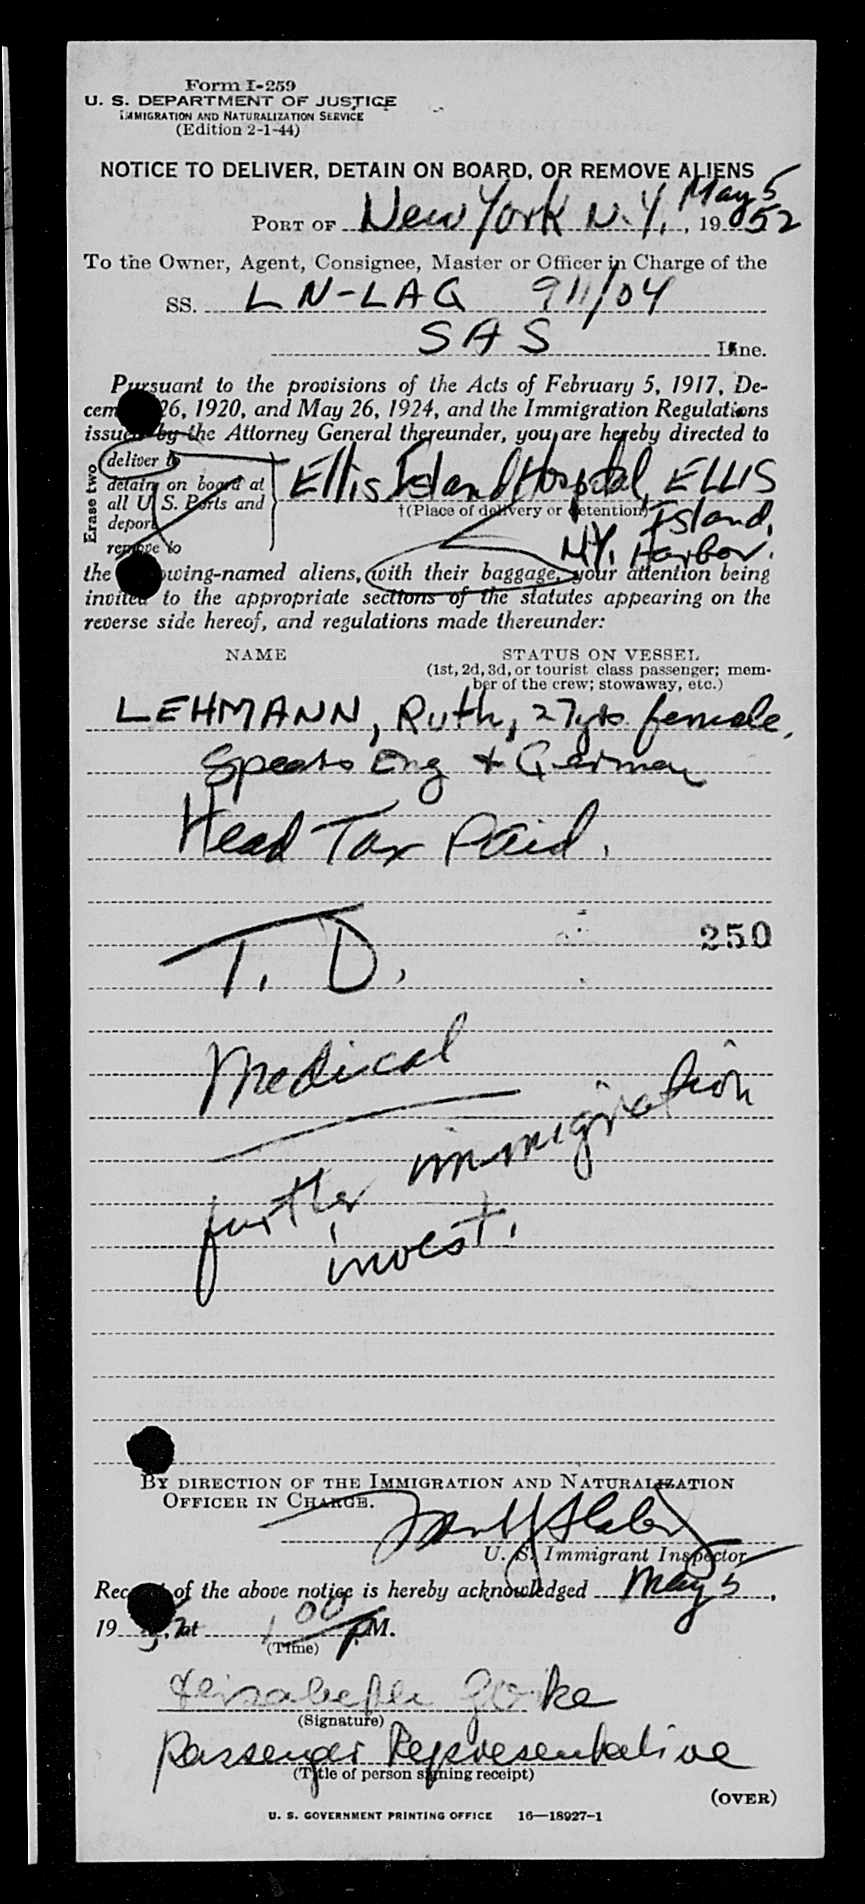 Form I-259
U. S. DEPARTMENT OF JUSTICE
IMMIGRATION AND NATURALIZATION SERVICE
(Edition 2-1-44)
NOTICE TO DELIVER, DETAIN ON BOARD, OR REMOVE ALIENS
May 5
PORT OF New York N.Y., 19 52
To the Owner, Agent, Consignee, Master or Officer in Charge of the
SS. LN-LAG 911/04
SAS Line.
Pursuant to the provisions of the Acts of February 5, 1917, De-
cem 26, 1920, and May 26, 1924, and the Immigration Regulations
issued by the Attorney General thereunder, you are hereby directed to
Erase two
deliver to
detain on board at
all U. S. Ports and
deport
remove to
Ellis Island Hospital, ELLIS
†(Place of delivery or detention)
Island,
N.Y. Harbor.
the owing-named aliens, with their baggage, your attention being
invited to the appropriate sections of the statutes appearing on the
reverse side hereof, and regulations made thereunder:
NAME
STATUS ON VESSEL
(1st, 2d, 3d, or tourist class passenger; mem-
ber of the crew; stowaway, etc.)
LEHMANN, Ruth, 27yrs. female,
Speaks Eng + German
Head Tax Paid.
250
T. D.
Medical
further immigration
invest.
BY DIRECTION OF THE IMMIGRATION AND NATURALIZATION
OFFICER IN CHARGE.
U. S. Immigrant Inspector
Rec of the above notice is hereby acknowledged May 5,
19 52, at 1 00 P.M.
(Time)
(Signature)
Passenger Representative
(Title of person signing receipt)
(OVER)
U. S. GOVERNMENT PRINTING OFFICE 16—18927-1